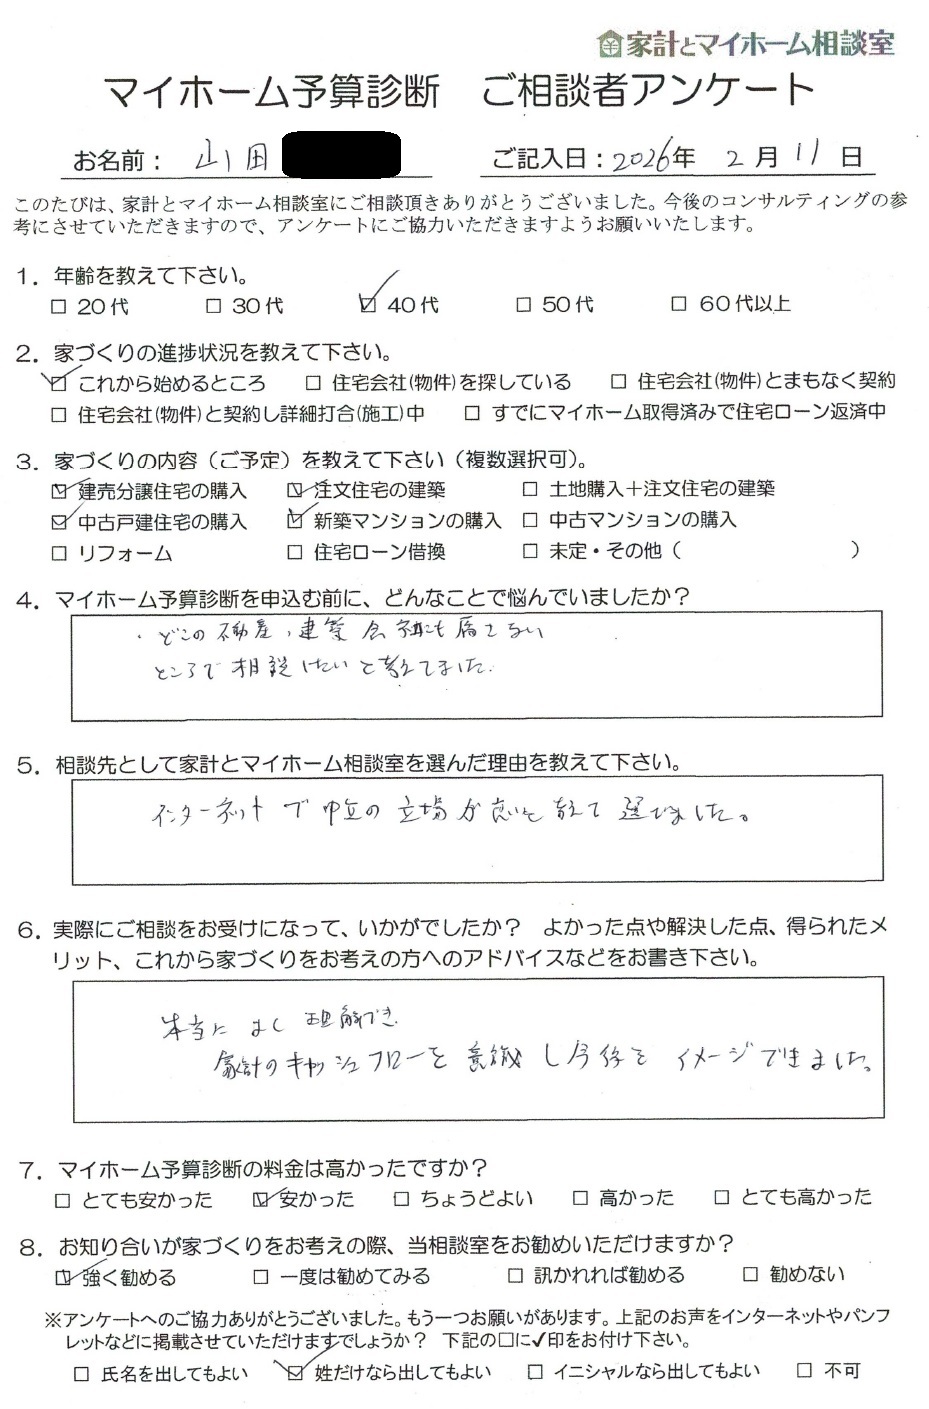 家計とマイホーム相談室
マイホーム予算診断 ご相談者アンケート
お名前： 山田 ご記入日：2026年 2月 11日
このたびは、家計とマイホーム相談室にご相談頂きありがとうございました。今後のコンサルティングの参
考にさせていただきますので、アンケートにご協力いただきますようお願いいたします。
1．年齢を教えて下さい。
□ 20代 □ 30代 ☑ 40代 □ 50代 □ 60代以上
2．家づくりの進捗状況を教えて下さい。
☑ これから始めるところ □ 住宅会社(物件)を探している □ 住宅会社(物件)とまもなく契約
□ 住宅会社(物件)と契約し詳細打合(施工)中 □ すでにマイホーム取得済みで住宅ローン返済中
3．家づくりの内容（ご予定）を教えて下さい（複数選択可）。
☑ 建売分譲住宅の購入 ☑ 注文住宅の建築 □ 土地購入＋注文住宅の建築
☑ 中古戸建住宅の購入 ☑ 新築マンションの購入 □ 中古マンションの購入
□ リフォーム □ 住宅ローン借換 □ 未定・その他（ ）
4．マイホーム予算診断を申込む前に、どんなことで悩んでいましたか？
・どこの不動産、建築会社にも属さない
ところで相談したいと考えてました。
5．相談先として家計とマイホーム相談室を選んだ理由を教えて下さい。
インターネットで中立の立場が良いと考えて選びました。
6．実際にご相談をお受けになって、いかがでしたか？ よかった点や解決した点、得られたメ
リット、これから家づくりをお考えの方へのアドバイスなどをお書き下さい。
本当によく理解でき
家計のキャッシュフローを意識し今後をイメージできました。
7．マイホーム予算診断の料金は高かったですか？
□ とても安かった ☑ 安かった □ ちょうどよい □ 高かった □ とても高かった
8．お知り合いが家づくりをお考えの際、当相談室をお勧めいただけますか？
☑ 強く勧める □ 一度は勧めてみる □ 訊かれれば勧める □ 勧めない
※アンケートへのご協力ありがとうございました。もう一つお願いがあります。上記のお声をインターネットやパンフ
レットなどに掲載させていただけますでしょうか？ 下記の□に✓印をお付け下さい。
□ 氏名を出してもよい ☑ 姓だけなら出してもよい □ イニシャルなら出してもよい □ 不可